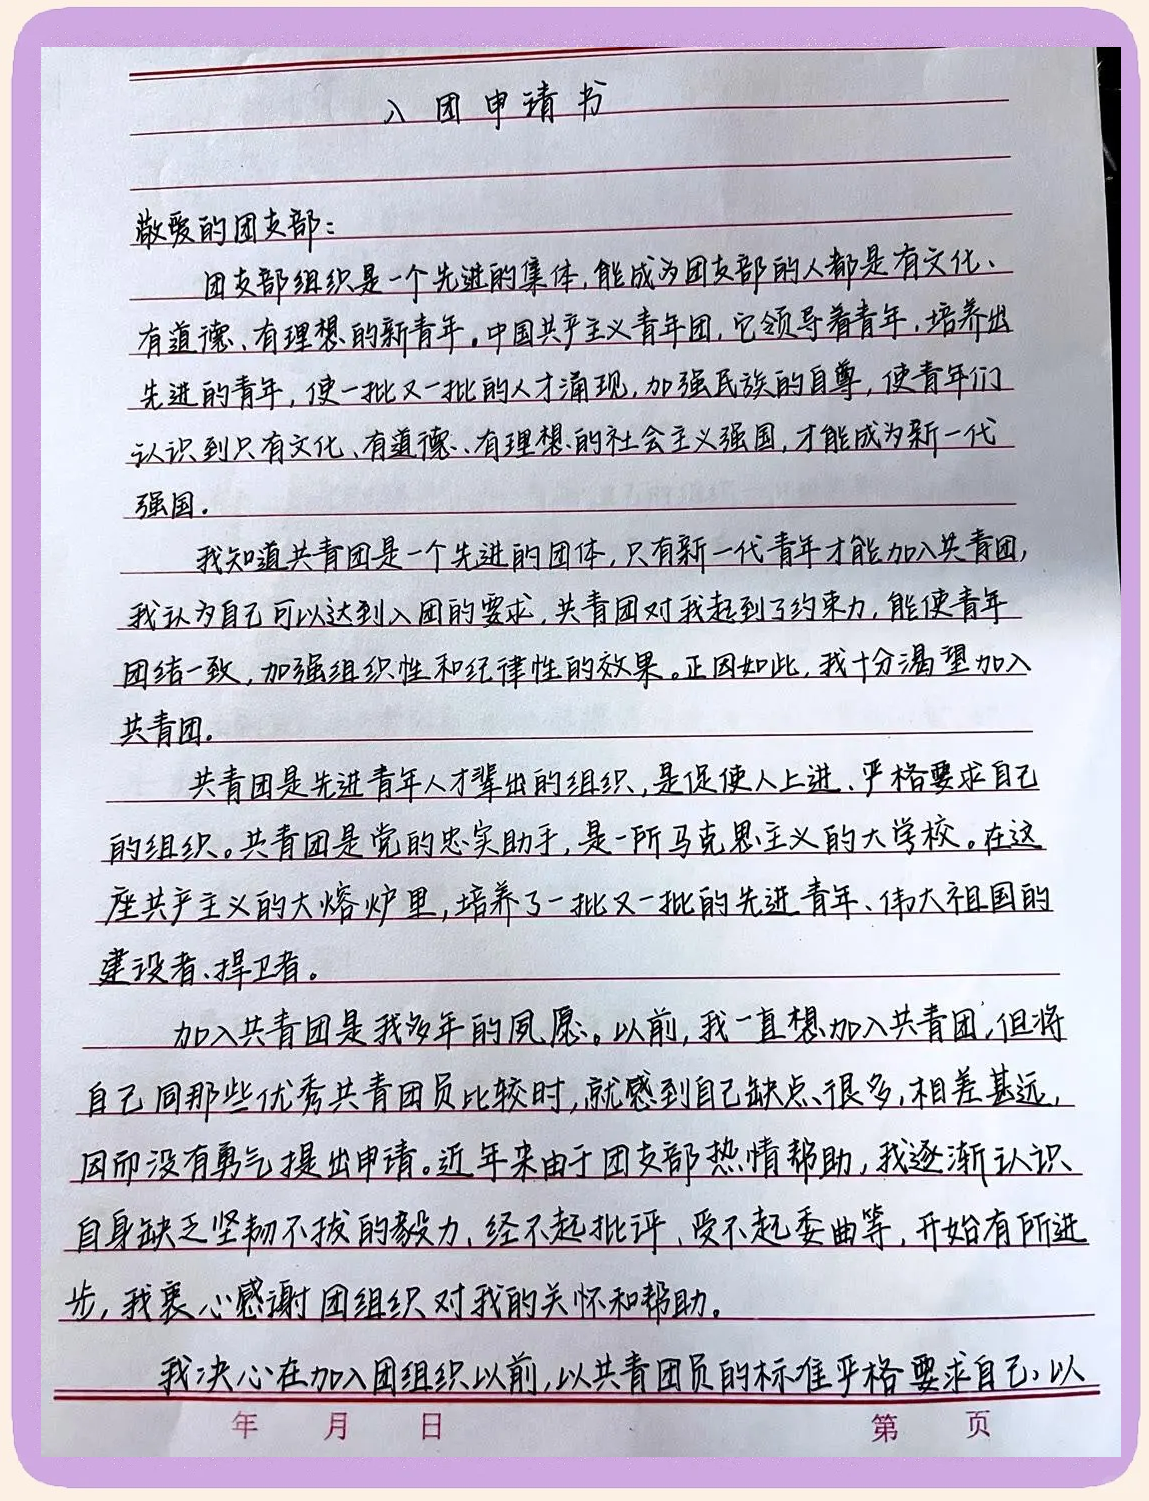 入团申请书
敬爱的团支部：
团支部组织是一个先进的集体，能成为团支部的人都是有文化、
有道德、有理想的新青年。中国共产主义青年团，它领导着青年，培养出
先进的青年，使一批又一批的人才涌现，加强民族的自尊，使青年们
认识到只有文化、有道德、有理想的社会主义强国，才能成为新一代
强国。
我知道共青团是一个先进的团体，只有新一代青年才能加入共青团，
我认为自己可以达到入团的要求，共青团对我起到了约束力，能使青年
团结一致，加强组织性和纪律性的效果。正因如此，我十分渴望加入
共青团。
共青团是先进青年人才辈出的组织，是促使人上进、严格要求自己
的组织。共青团是党的忠实助手，是一所马克思主义的大学校。在这
座共产主义的大熔炉里，培养了一批又一批的先进青年、伟大祖国的
建设者、捍卫者。
加入共青团是我多年的夙愿。以前，我一直想加入共青团，但将
自己同那些优秀共青团员比较时，就感到自己缺点很多，相差甚远，
因而没有勇气提出申请。近年来由于团支部热情帮助，我逐渐认识
自身缺乏坚韧不拔的毅力，经不起批评、受不起委曲等，开始有所进
步，我衷心感谢团组织对我的关怀和帮助。
我决心在加入团组织以前，以共青团员的标准严格要求自己，以
年 月 日 第 页